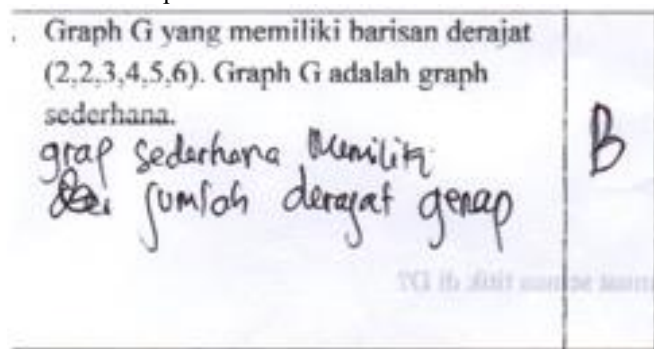 . Graph G yang memiliki barisan derajat
(2,2,3,4,5,6). Graph G adalah graph
sederhana.
grap sederhana Memiliki
jumlah derajat genap
B